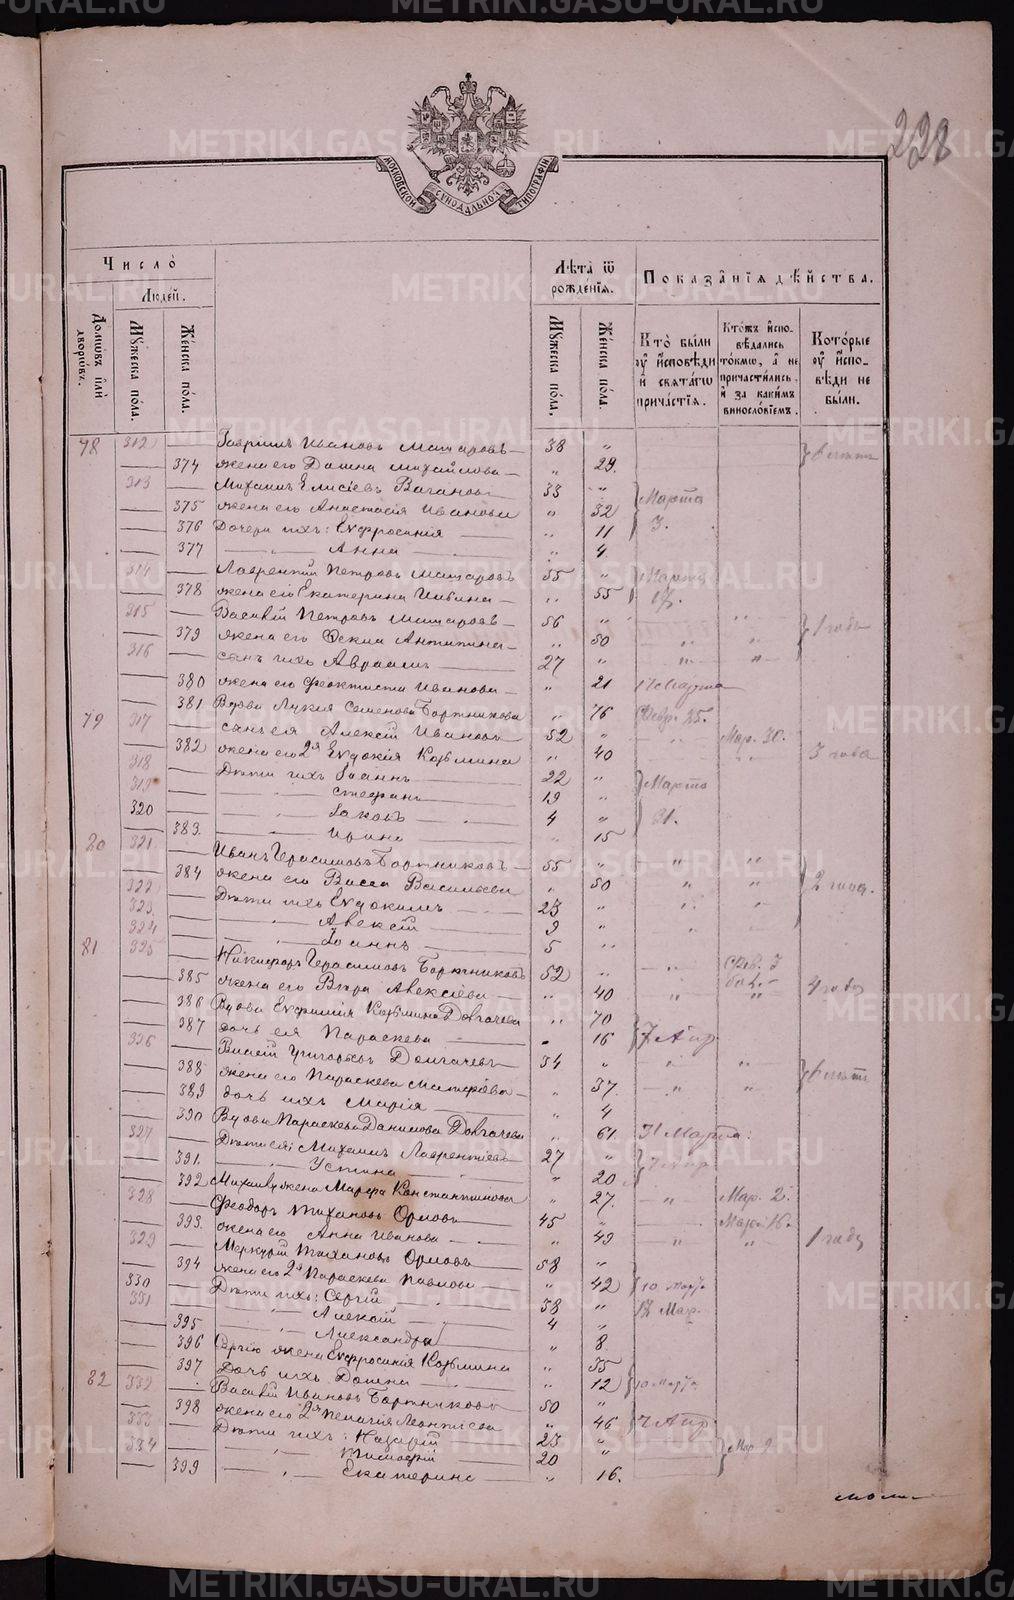 228
МОСКОВСКОЙ СѴНОДАЛЬНОЙ ТИПОГРАФІИ
Число̀
Людей.
Домѡвъ и҆лѝ дворѡвъ.
Мꙋжеска по́ла.
Же́нска по́ла.
Лѣ́та ѿ рожде́нїѧ.
Мꙋжеска по́ла.
Же́нска по́ла.
Показа̑нїѧ дѣ́йства.
Кто̀ бы́ли ᲂу҆ и҆сповѣди и҆ свѧта́гѡ прича́стїѧ.
Кто́жъ и҆спо-вѣдались то́кмѡ, а҆ не причасти́лись, и҆ за какимъ винословїемъ.
Кото́рые ᲂу҆ и҆спо-вѣди не бы́ли.
78 312 Гавріилъ Ивановъ 38 „
374 жена его Домна Михайлова „ 29.
313 Михаилъ Елисіевъ Вагановъ 33 „ Марта
375 жена его Анастасія Иванова „ 32 3.
376 Дочери ихъ: Евфросинія „ 11
377 — „ — Анна „ 4
314 Лаврентій Петровъ 55 „ Марта
378 жена его Екатерина „ 55 17.
315 Василій Петровъ 56 „ „ 1 годъ
379 жена его „ 50 „ „
316 сынъ ихъ Авраамъ 27 „ „ „
380 жена его Феоктиста Иванова „ 21 17 Марта
381 Вдова Лукія Семенова Бортникова „ 76 Февр. 25.
79 317 сынъ ея Алексій Ивановъ 52 „ „ Мар. 30.
382 жена его 2я Евдокія Козьмина „ 40 „ 3 года
318 Дѣти ихъ Іоаннъ 22 „ Марта
319 — „ — Стефанъ 19 „
320 — „ — Іаковъ 4 „ 31.
383. — „ — Ирина „ 15
80 321 Иванъ Герасимовъ Бортниковъ 55 „ „ „
384 жена его Васса Васильева „ 50 „ „ 2 года.
322 Дѣти ихъ Евдокимъ 23 „ „ „
323
324 — „ — Алексій 9 „ „
81 325 — „ — Іоаннъ 5 „
Никифоръ Герасимовъ Бортниковъ 52 „ „ Фев. 3
385 жена его Вѣра Алексіева „ 40 „ „ 4 года
386 Вдова Евфимія Козьмина Долгачева „ 70
387 дочь ея Параскева „ 16 7 Апр.
326 Василій Григорьевъ Долгачевъ 34 „ „ „
388 жена его Параскева „ 37. „ „ 6 лѣтъ
389 дочь ихъ Марія „ 4
390 Вдова Параскева Данилова Долгачева „ 61. 31 Марта.
327 Дѣти ея: Михаилъ Лаврентіевъ 27 „ 7 Апр
391. — „ — Устина „ 20
392 Михаила жена Марѳа Константинова „ 27. „ Мар. 2.
328 Феодоръ Тихановъ Орловъ 45 „ Мар. 16.
393. жена его Анна Иванова „ 49 „ „ 1 годъ
329 Меркурій Тихановъ Орловъ 58 „
394 жена его 2я Параскева Павлова „ 42 10 Марта
330 Дѣти ихъ: Сергій 38 „ 17 Мар.
331 — „ — Алексій 4 „
395 — „ — Александра „ 8.
396 Сергію жена Евфросинія Козьмина „ 35
397 Дочь ихъ Домна „ 12 10 Марта
82 332 Василій Ивановъ Бортниковъ 50 „
398 жена его 2я Пелагія Леонтіева „ 46 7 Апр.
333 Дѣти ихъ: Назарій 23 „
334 — „ — Тимоѳій 20 „ Мар. 2.
399 — „ — Екатерина „ 16.